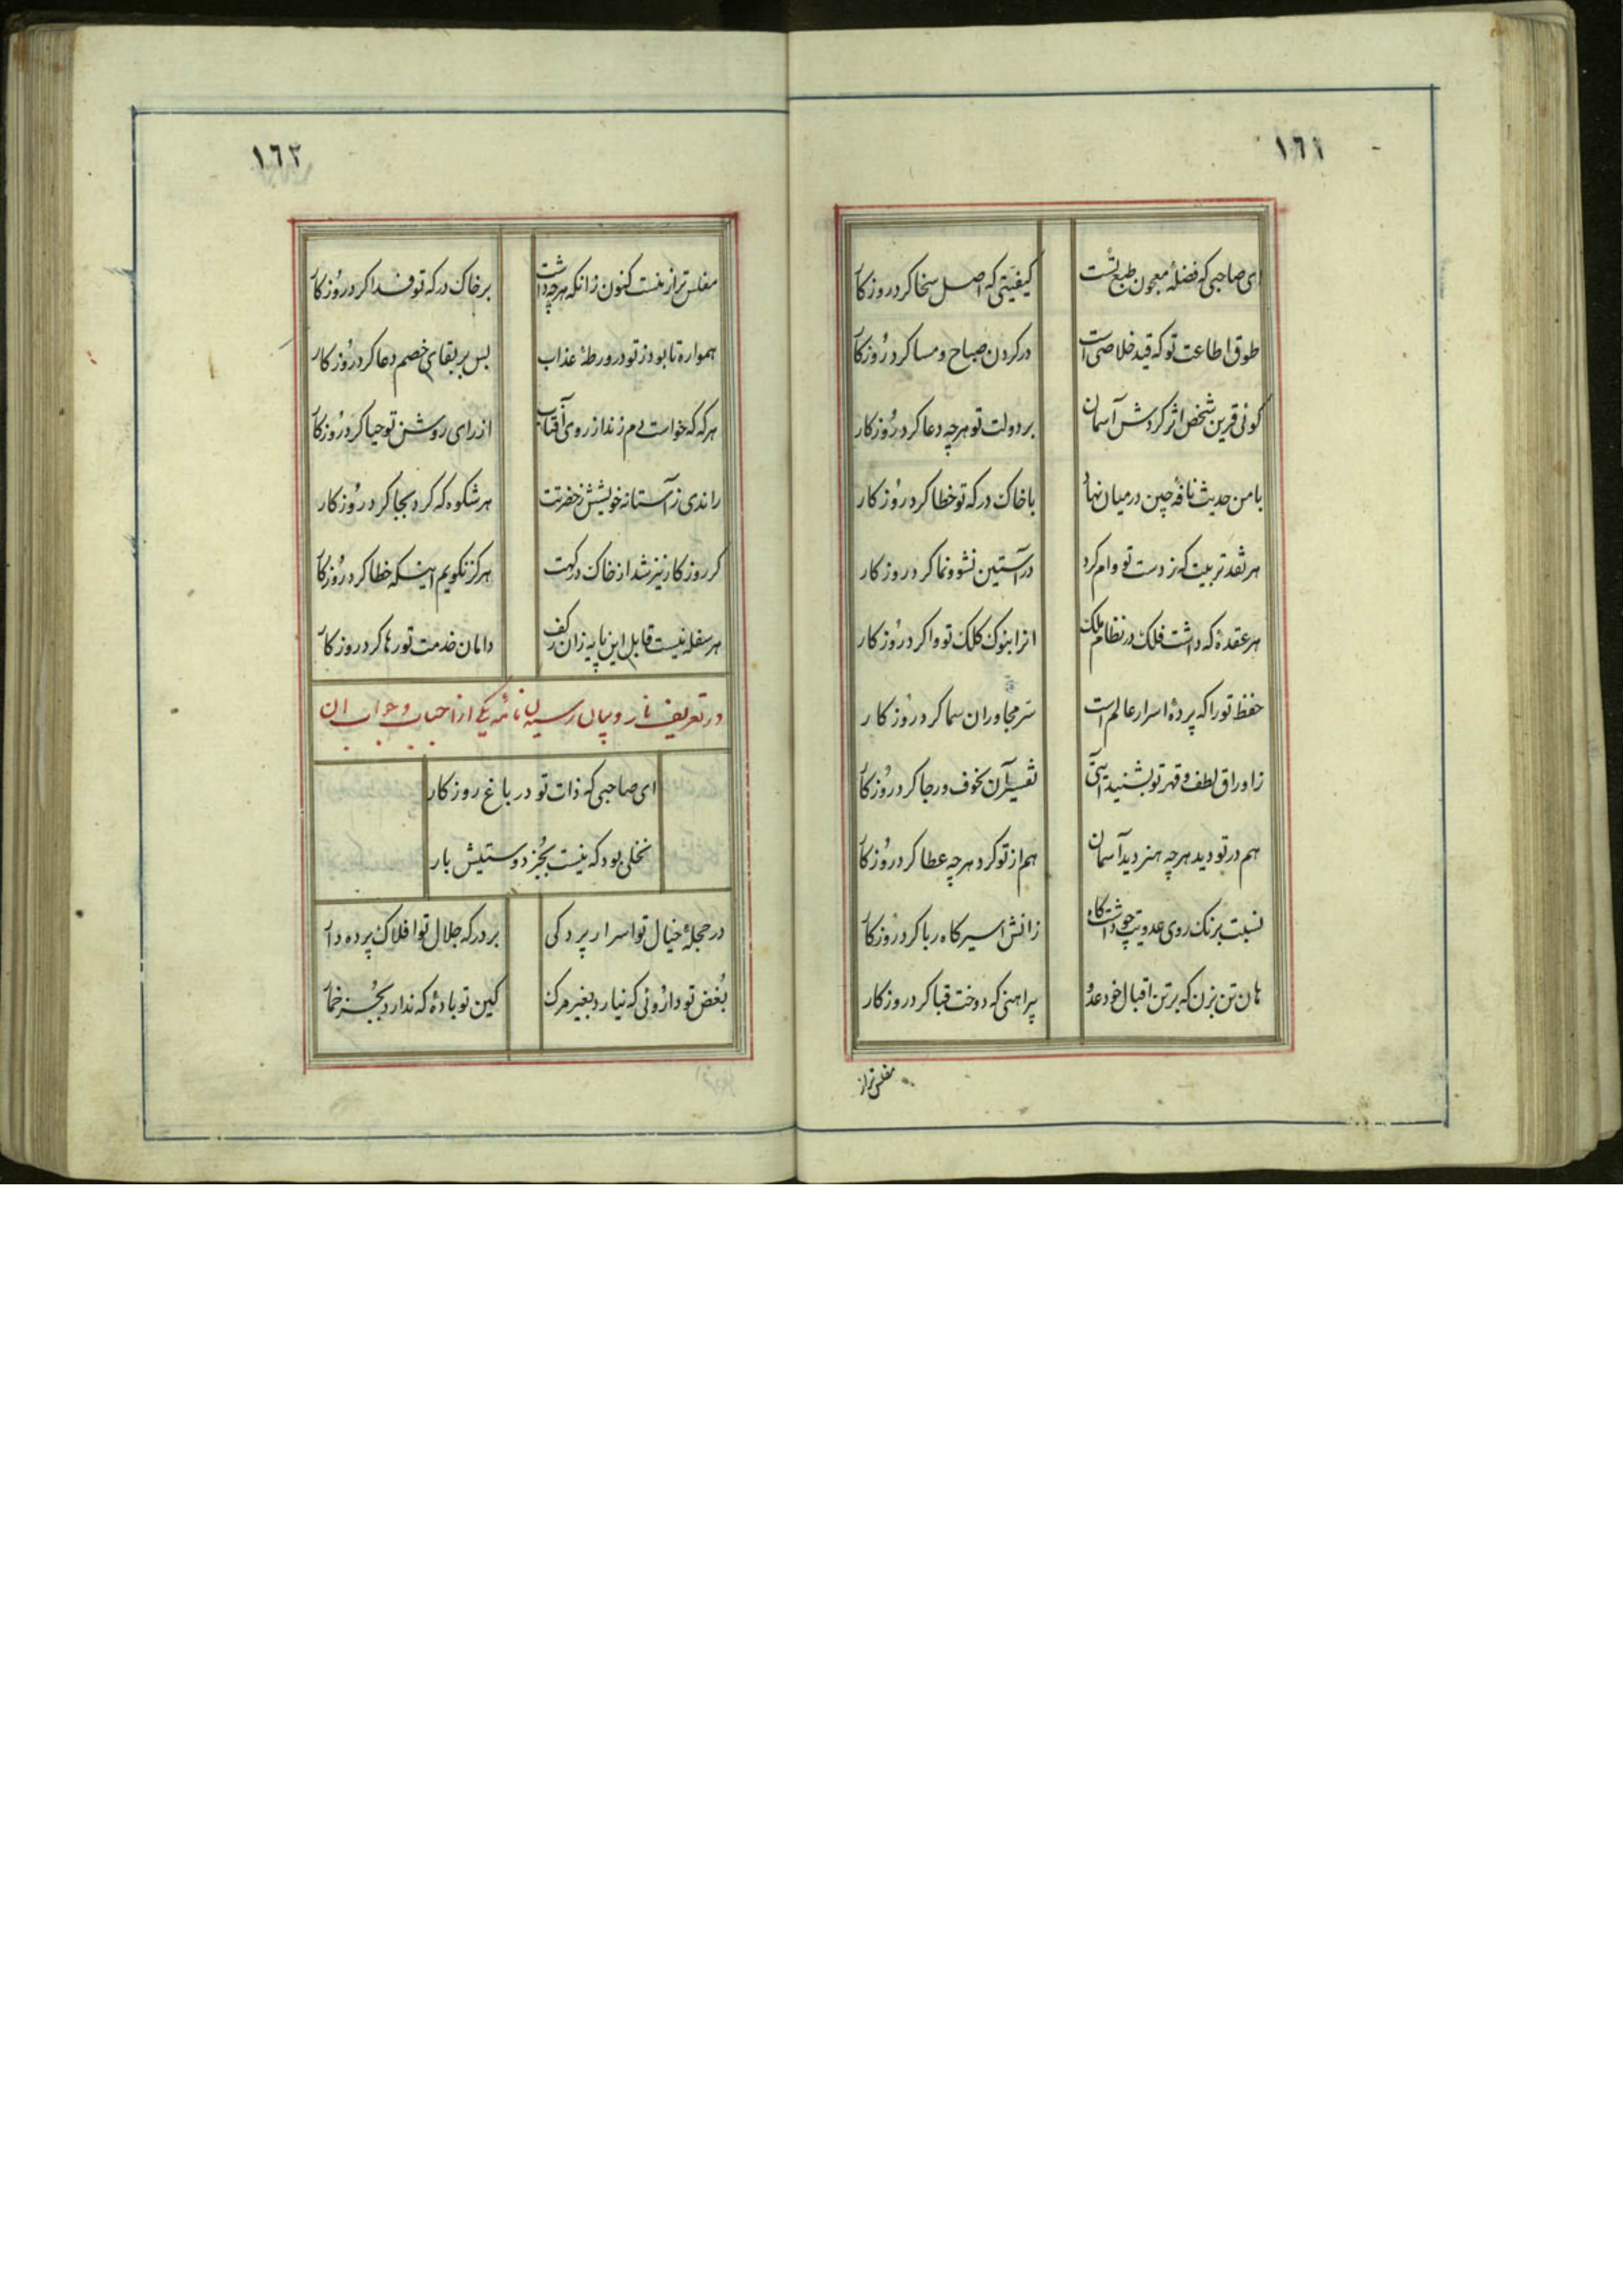 ١٦١
ای صاحبی که فضلهٔ معجون طبع تست کیفیتی که اصل سخا کرد روزکار
طوق اطاعت تو که قید خلاصی است در کردن صباح و مسا کرد روزکار
کوئی قرین شخص اثر کردش آسمان بر دولت تو هرچه دعا کرد روزکار
با من حدیث نافهٔ چین در میان نهاد با خاک درکه تو خطا کرد روزکار
هر نقد تربیت که ز دست تو وام کرد در آستین نشو و نما کرد روزکار
هر عقدهٔ که داشت فلک در نظام ملک انرا بنوک کلک تو وا کرد روزکار
حفظ تو را که پردهٔ اسرار عالم است ستر مجاوران سما کرد روزکار
ز اوراق لطف و قهر تو بشنید آیتی تفسیر آن بخوف و رجا کرد روزکار
هم در تو دید هرچه هنر دید آسمان هم از تو کرد هرچه عطا کرد روزکار
نسبت برنک روی عدویت چو داشت کاه زانش اسیر کاه ربا کرد روزکار
هان تن بزن که بر تن اقبال خود عدو پیراهنی که دوخت قبا کرد روزکار
مفلس تر از
١٦٢
مفلس تر از منست کنون زانکه هرچه داشت بر خاک درکه تو فدا کرد روزکار
همواره تا بود ز تو در ورطهٔ عذاب بس بر بقای خصم دعا کرد روزکار
هرکه که خواست دم زند از روی آفتاب از رای روشن تو حیا کرد روزکار
راندی ز آستانه خویشش ز حضرتت هر شکوه که کرد بجا کرد روزکار
کر روزکار نیز شد از خاک درکهت هرکز نکویم اینکه خطا کرد روزکار
هر سفله نیست قابل این پایه زان ز کف دامان خدمت تو رها کرد روزکار
در تعریف نار و بیان رسیدن نامه یکی از احباب و جواب ان
ای صاحبی که ذات تو در باغ روزکار
نخلی بود که نیست بجز دوستیش بار
در حجلهٔ خیال تو اسرار پردکی بر درکه جلال تو افلاک پرده دار
بغض تو داروئی که نیارد بغیر مرک کین تو بادهٔ که ندارد بجز خمار